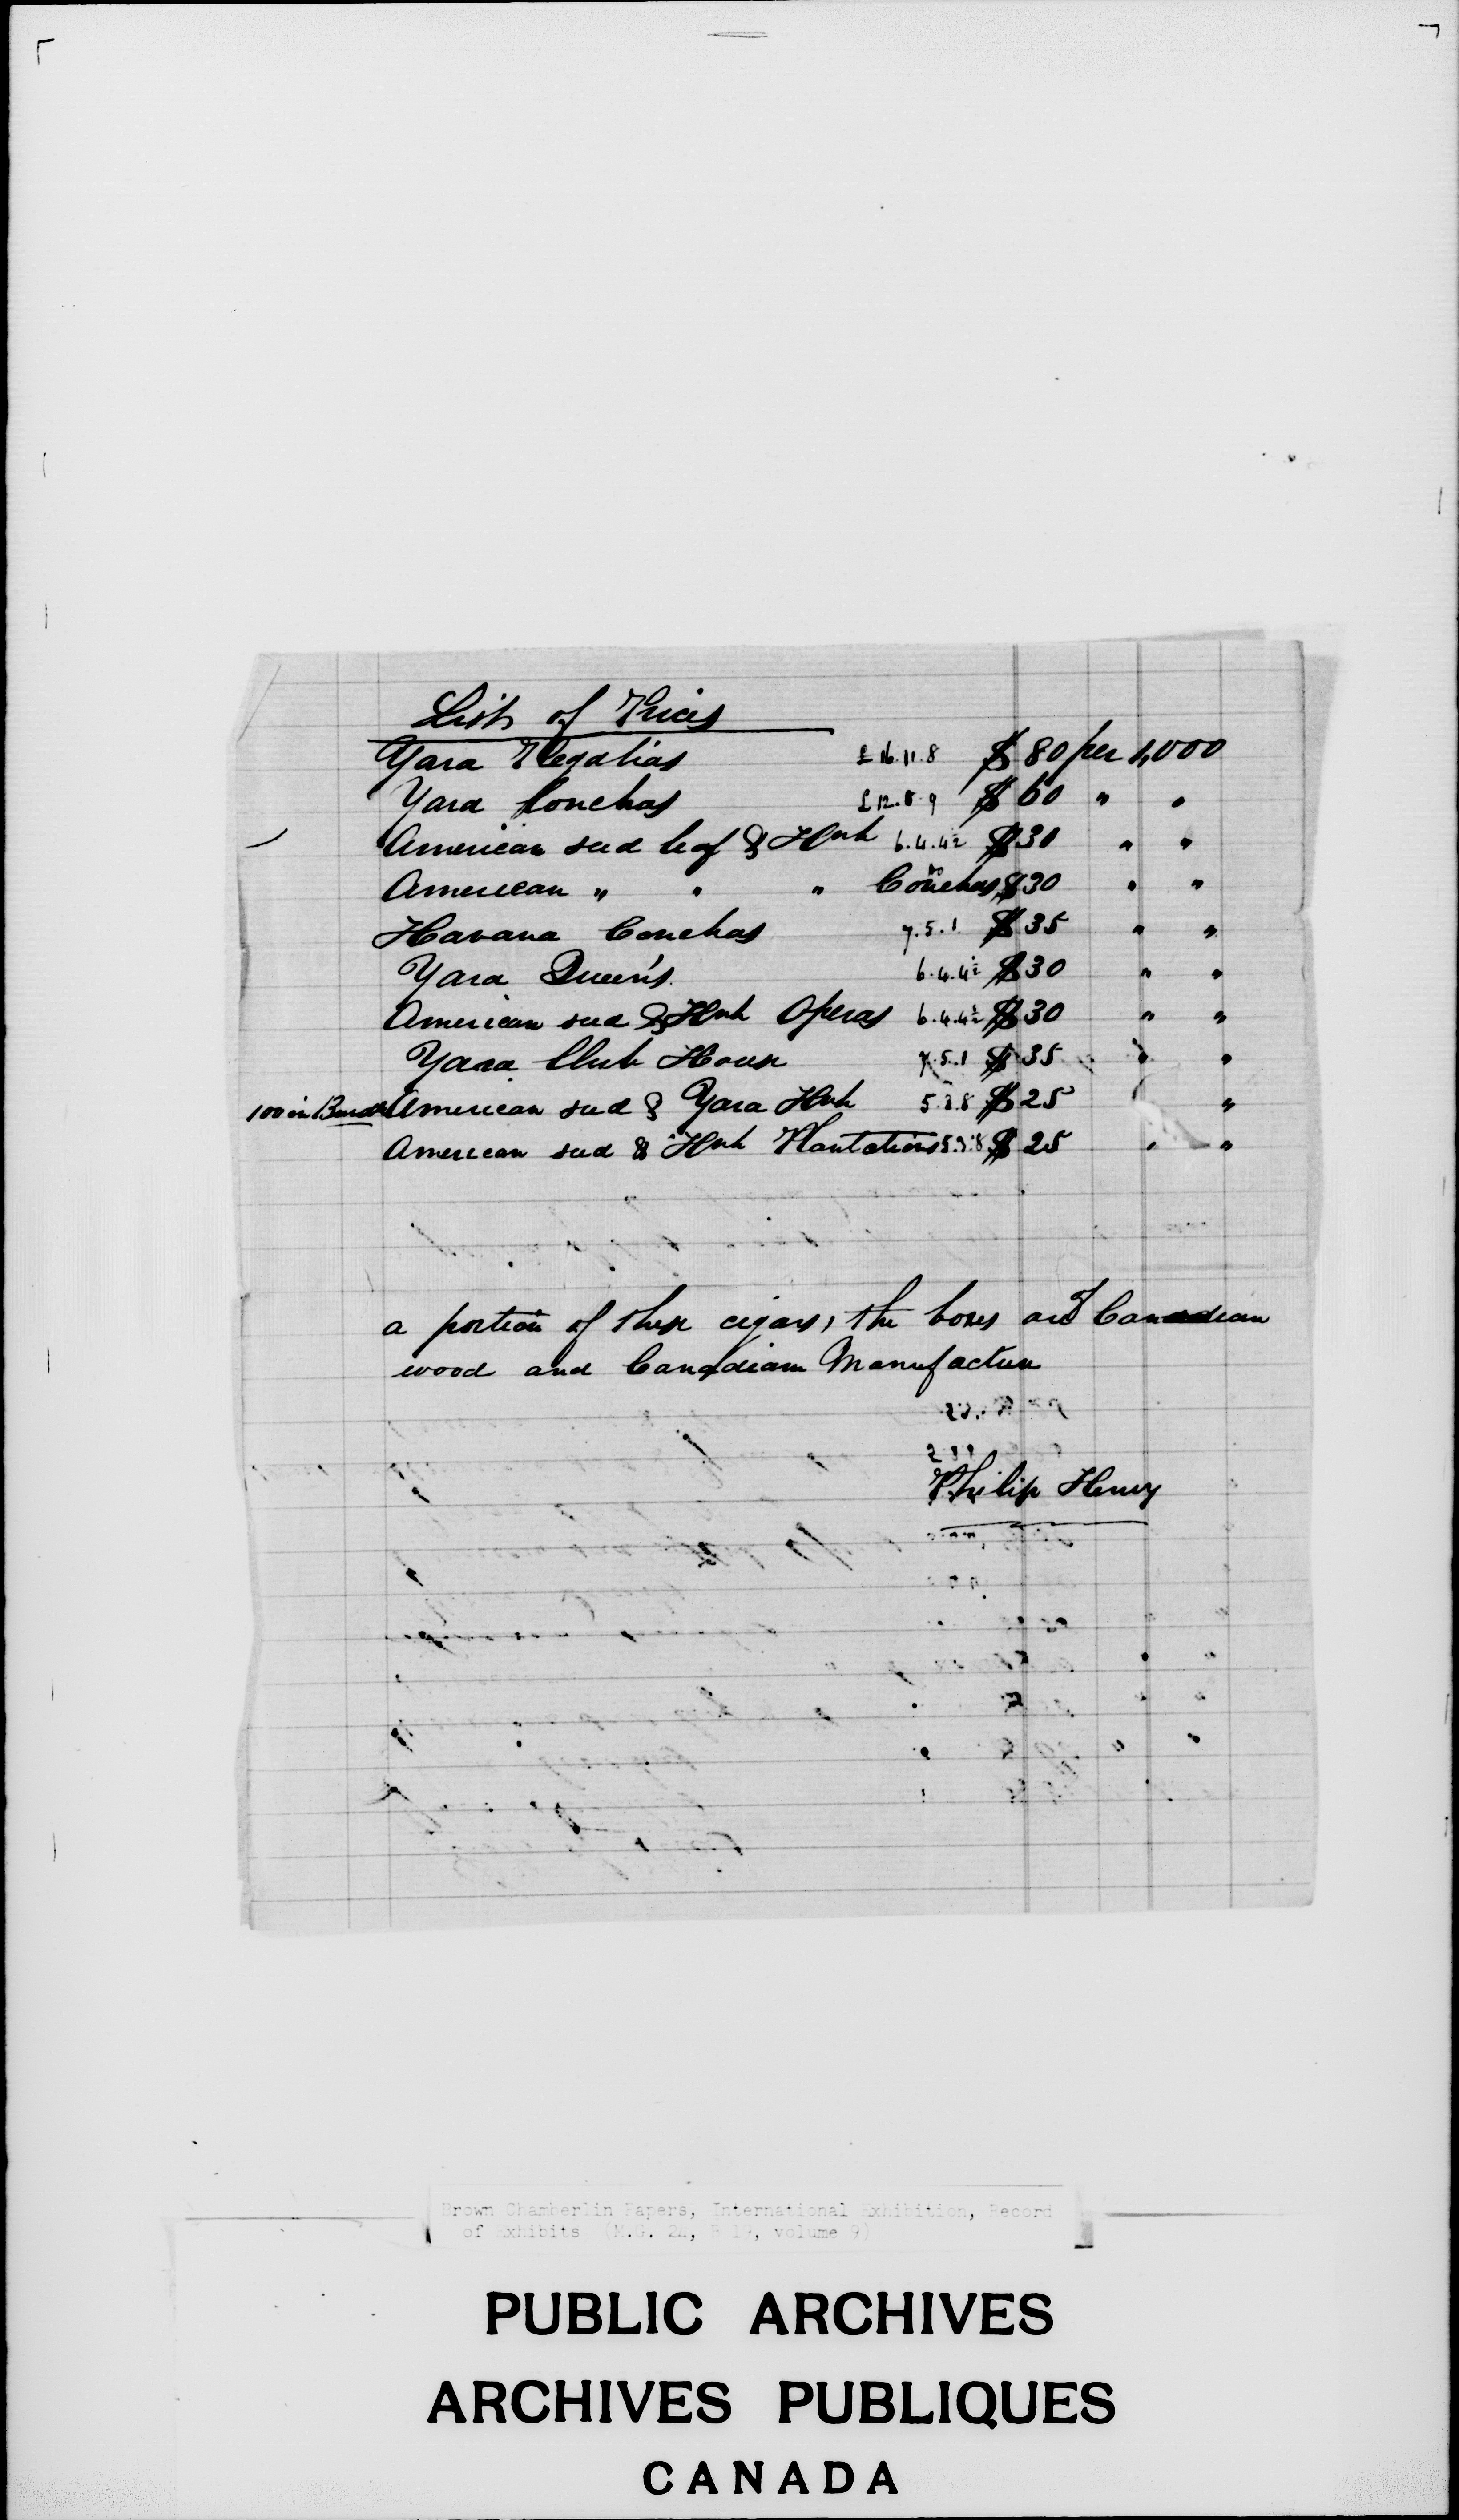 List of Prices
Yara Regalias £16.11.8 $80 per 1,000
Yara Conchas £12.8.9 $60 " "
American seed leaf & Hvh 6.4.4½ $30 " "
American " " " Conchas $30 " "
Havana Conchas 7.5.1 $35 " "
Yara Queen's 6.4.4½ $30 " "
American seed & Hvh Operas 6.4.4½ $30 " "
Yara Club House 7.5.1 $35 " "
100 in Bundle American seed & Yara Hvh 5.3.8 $25 "
American seed & Hvh Plantations 5.3.8 $25 " "
a portion of these cigars, the boxes are of Canadian
wood and Canadian Manufacture
Philip Henry
Brown Chamberlin Papers, International Exhibition, Record
of Exhibits (M.G. 24, B 19, volume 9)
PUBLIC ARCHIVES
ARCHIVES PUBLIQUES
CANADA